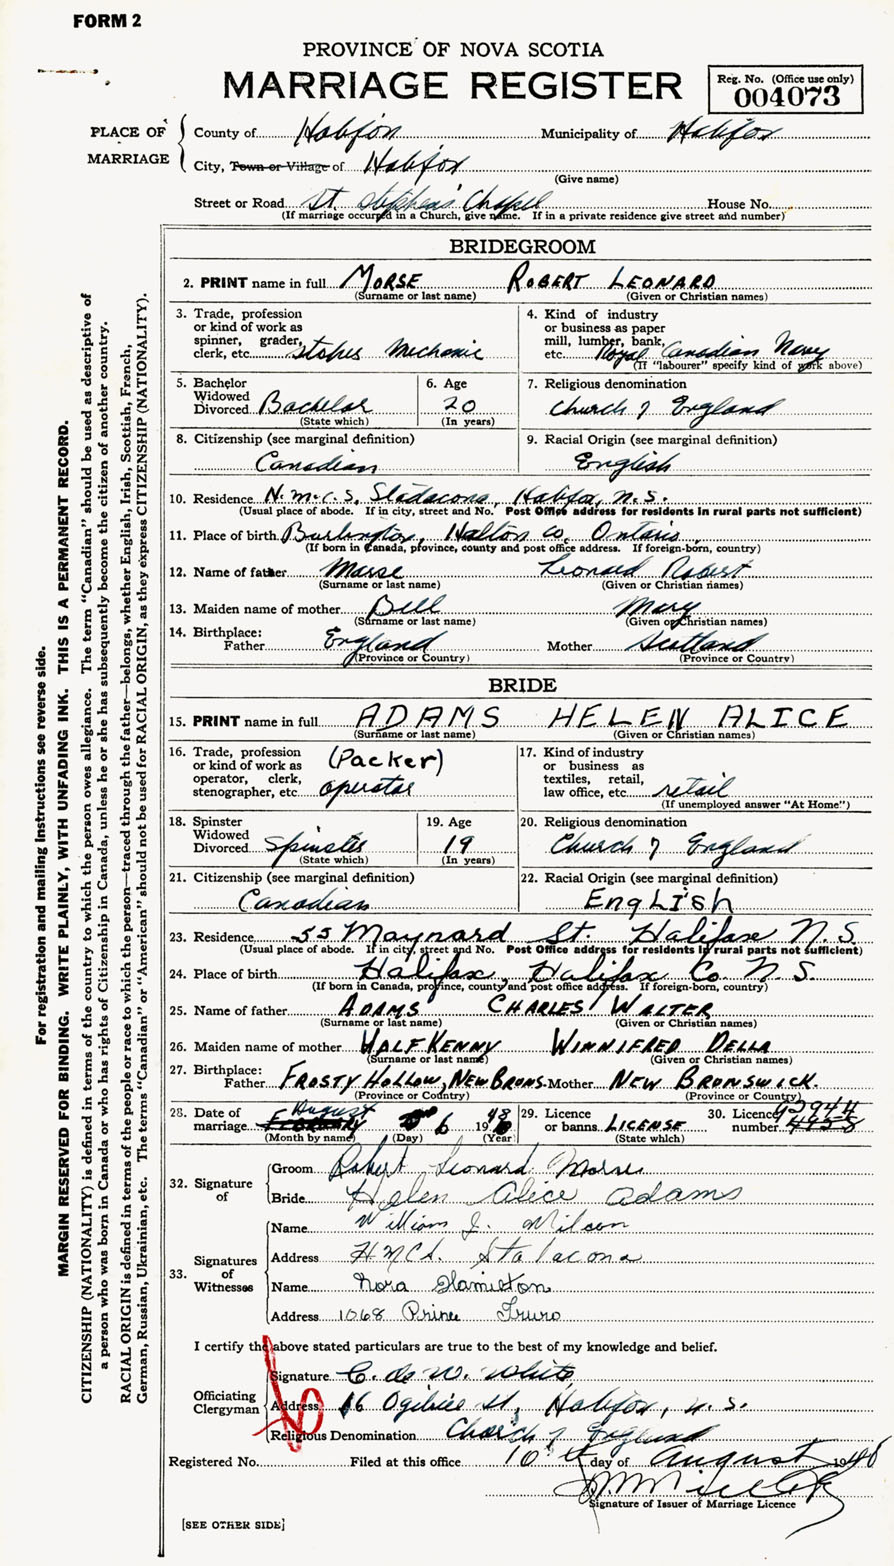 FORM 2
PROVINCE OF NOVA SCOTIA
MARRIAGE REGISTER
Reg. No. (Office use only)
004073
PLACE OF MARRIAGE
County of Halifax Municipality of Halifax
City, Town or Village of Halifax
(Give name)
Street or Road St. Stephens Chapel House No.
(If marriage occurred in a Church, give name. If in a private residence give street and number)
BRIDEGROOM
2. PRINT name in full MORSE ROBERT LEONARD
(Surname or last name) (Given or Christian names)
3. Trade, profession or kind of work as spinner, grader, clerk, etc. stoker Mechanic
4. Kind of industry or business as paper mill, lumber, bank, etc. Royal Canadian Navy
(If "labourer" specify kind of work above)
5. Bachelor Widowed Divorced Bachelor
(State which)
6. Age 20
(In years)
7. Religious denomination Church of England
8. Citizenship (see marginal definition) Canadian
9. Racial Origin (see marginal definition) English
10. Residence H.M.C.S. Stadacona, Halifax, N.S.
(Usual place of abode. If in city, street and No. Post Office address for residents in rural parts not sufficient)
11. Place of birth Burlington, Halton Co, Ontario
(If born in Canada, province, county and post office address. If foreign-born, country)
12. Name of father Morse Leonard Robert
(Surname or last name) (Given or Christian names)
13. Maiden name of mother Bell Mary
(Surname or last name) (Given or Christian names)
14. Birthplace: Father England Mother Scotland
(Province or Country) (Province or Country)
BRIDE
15. PRINT name in full ADAMS HELEN ALICE
(Surname or last name) (Given or Christian names)
16. Trade, profession or kind of work as operator, clerk, stenographer, etc. (Packer) operator
17. Kind of industry or business as textiles, retail, law office, etc. retail
(If unemployed answer "At Home")
18. Spinster Widowed Divorced Spinster
(State which)
19. Age 19
(In years)
20. Religious denomination Church of England
21. Citizenship (see marginal definition) Canadian
22. Racial Origin (see marginal definition) EngLish
23. Residence 55 Maynard St. Halifax N.S.
(Usual place of abode. If in city, street and No. Post Office address for residents in rural parts not sufficient)
24. Place of birth Halifax, Halifax Co N.S.
(If born in Canada, province, county and post office address. If foreign-born, country)
25. Name of father ADAMS CHARLES WALTER
(Surname or last name) (Given or Christian names)
26. Maiden name of mother HALFKENNY WINNIFRED DELLA
(Surname or last name) (Given or Christian names)
27. Birthplace: Father FROSTY HOLLOW, NEW BRONS. Mother NEW BRONSWICK.
(Province or Country) (Province or Country)
28. Date of marriage August 6 1948
(Month by name) (Day) (Year)
29. Licence or banns LICENSE
(State which)
30. Licence number
32. Signature of
Groom Robert Leonard Morse
Bride Helen Alice Adams
33. Signatures of Witnesses
Name William J.
Address HMCS. Stadacona
Name Nora Hamilton
Address 1068 Prince Truro
I certify the above stated particulars are true to the best of my knowledge and belief.
Officiating Clergyman
Signature C. de W. White
Address 16 Ogilvie St, Halifax, N.S.
Religious Denomination Church of England
Registered No. Filed at this office 10th day of August 1948
Signature of Issuer of Marriage Licence
[SEE OTHER SIDE]
For registration and mailing instructions see reverse side.
MARGIN RESERVED FOR BINDING. WRITE PLAINLY, WITH UNFADING INK. THIS IS A PERMANENT RECORD.
CITIZENSHIP (NATIONALITY) is defined in terms of the country to which the person owes allegiance. The term "Canadian" should be used as descriptive of
a person who was born in Canada or who has rights of Citizenship in Canada, unless he or she has subsequently become the citizen of another country.
RACIAL ORIGIN is defined in terms of the people or race to which the person—traced through the father—belongs, whether English, Irish, Scottish, French,
German, Russian, Ukrainian, etc. The terms "Canadian" or "American" should not be used for RACIAL ORIGIN, as they express CITIZENSHIP (NATIONALITY).